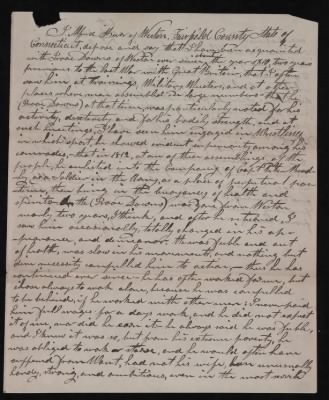 I, Alfred Hoves of Weston, Fairfield County State of
Connecticut, depose and say that I have been acquainted
with Isaac Downs of Weston ever since the year 1810, two years
previous to the last War with Great Britain, that I often
saw him at trainings, Military Musters, and at other
places where men assembled in large numbers that he
(Isaac Downs) at that time, was particularly noted for his
activity, dexterity, and for his bodily strength, and at
such meetings I have seen him engaged in Wrestling
in which sport, he showed evident superiority among his
comrades, that in 1812, at one of these assemblings of the
people, he enlisted into the Company of Capt
as a Soldier in the Army as a place of
then being in the buoyancy of health and
spirits (Isaac Downs) was gone from Weston
nearly two years, I think, and after he returned, I
saw him occasionally, totally changed in his ap-
pearance, and demeanor. He was feeble and out
of health, was slow in his movements, and nothing but
necessity compelled him to action— thus he has
continued ever since— he has often worked for me, but
chose always to work alone, because he was compelled
to be behind, if he worked with other men: I never paid
him full wages for a days work, and he did not expect
it of me, nor did he earn it: he always said he was feeble,
and I knew it was so, but from his extreme poverty, he
was obliged to work or starve, and he would often have
suffered from Want, had not his wife, been unusually
handy, strong, and ambitious, even in the most